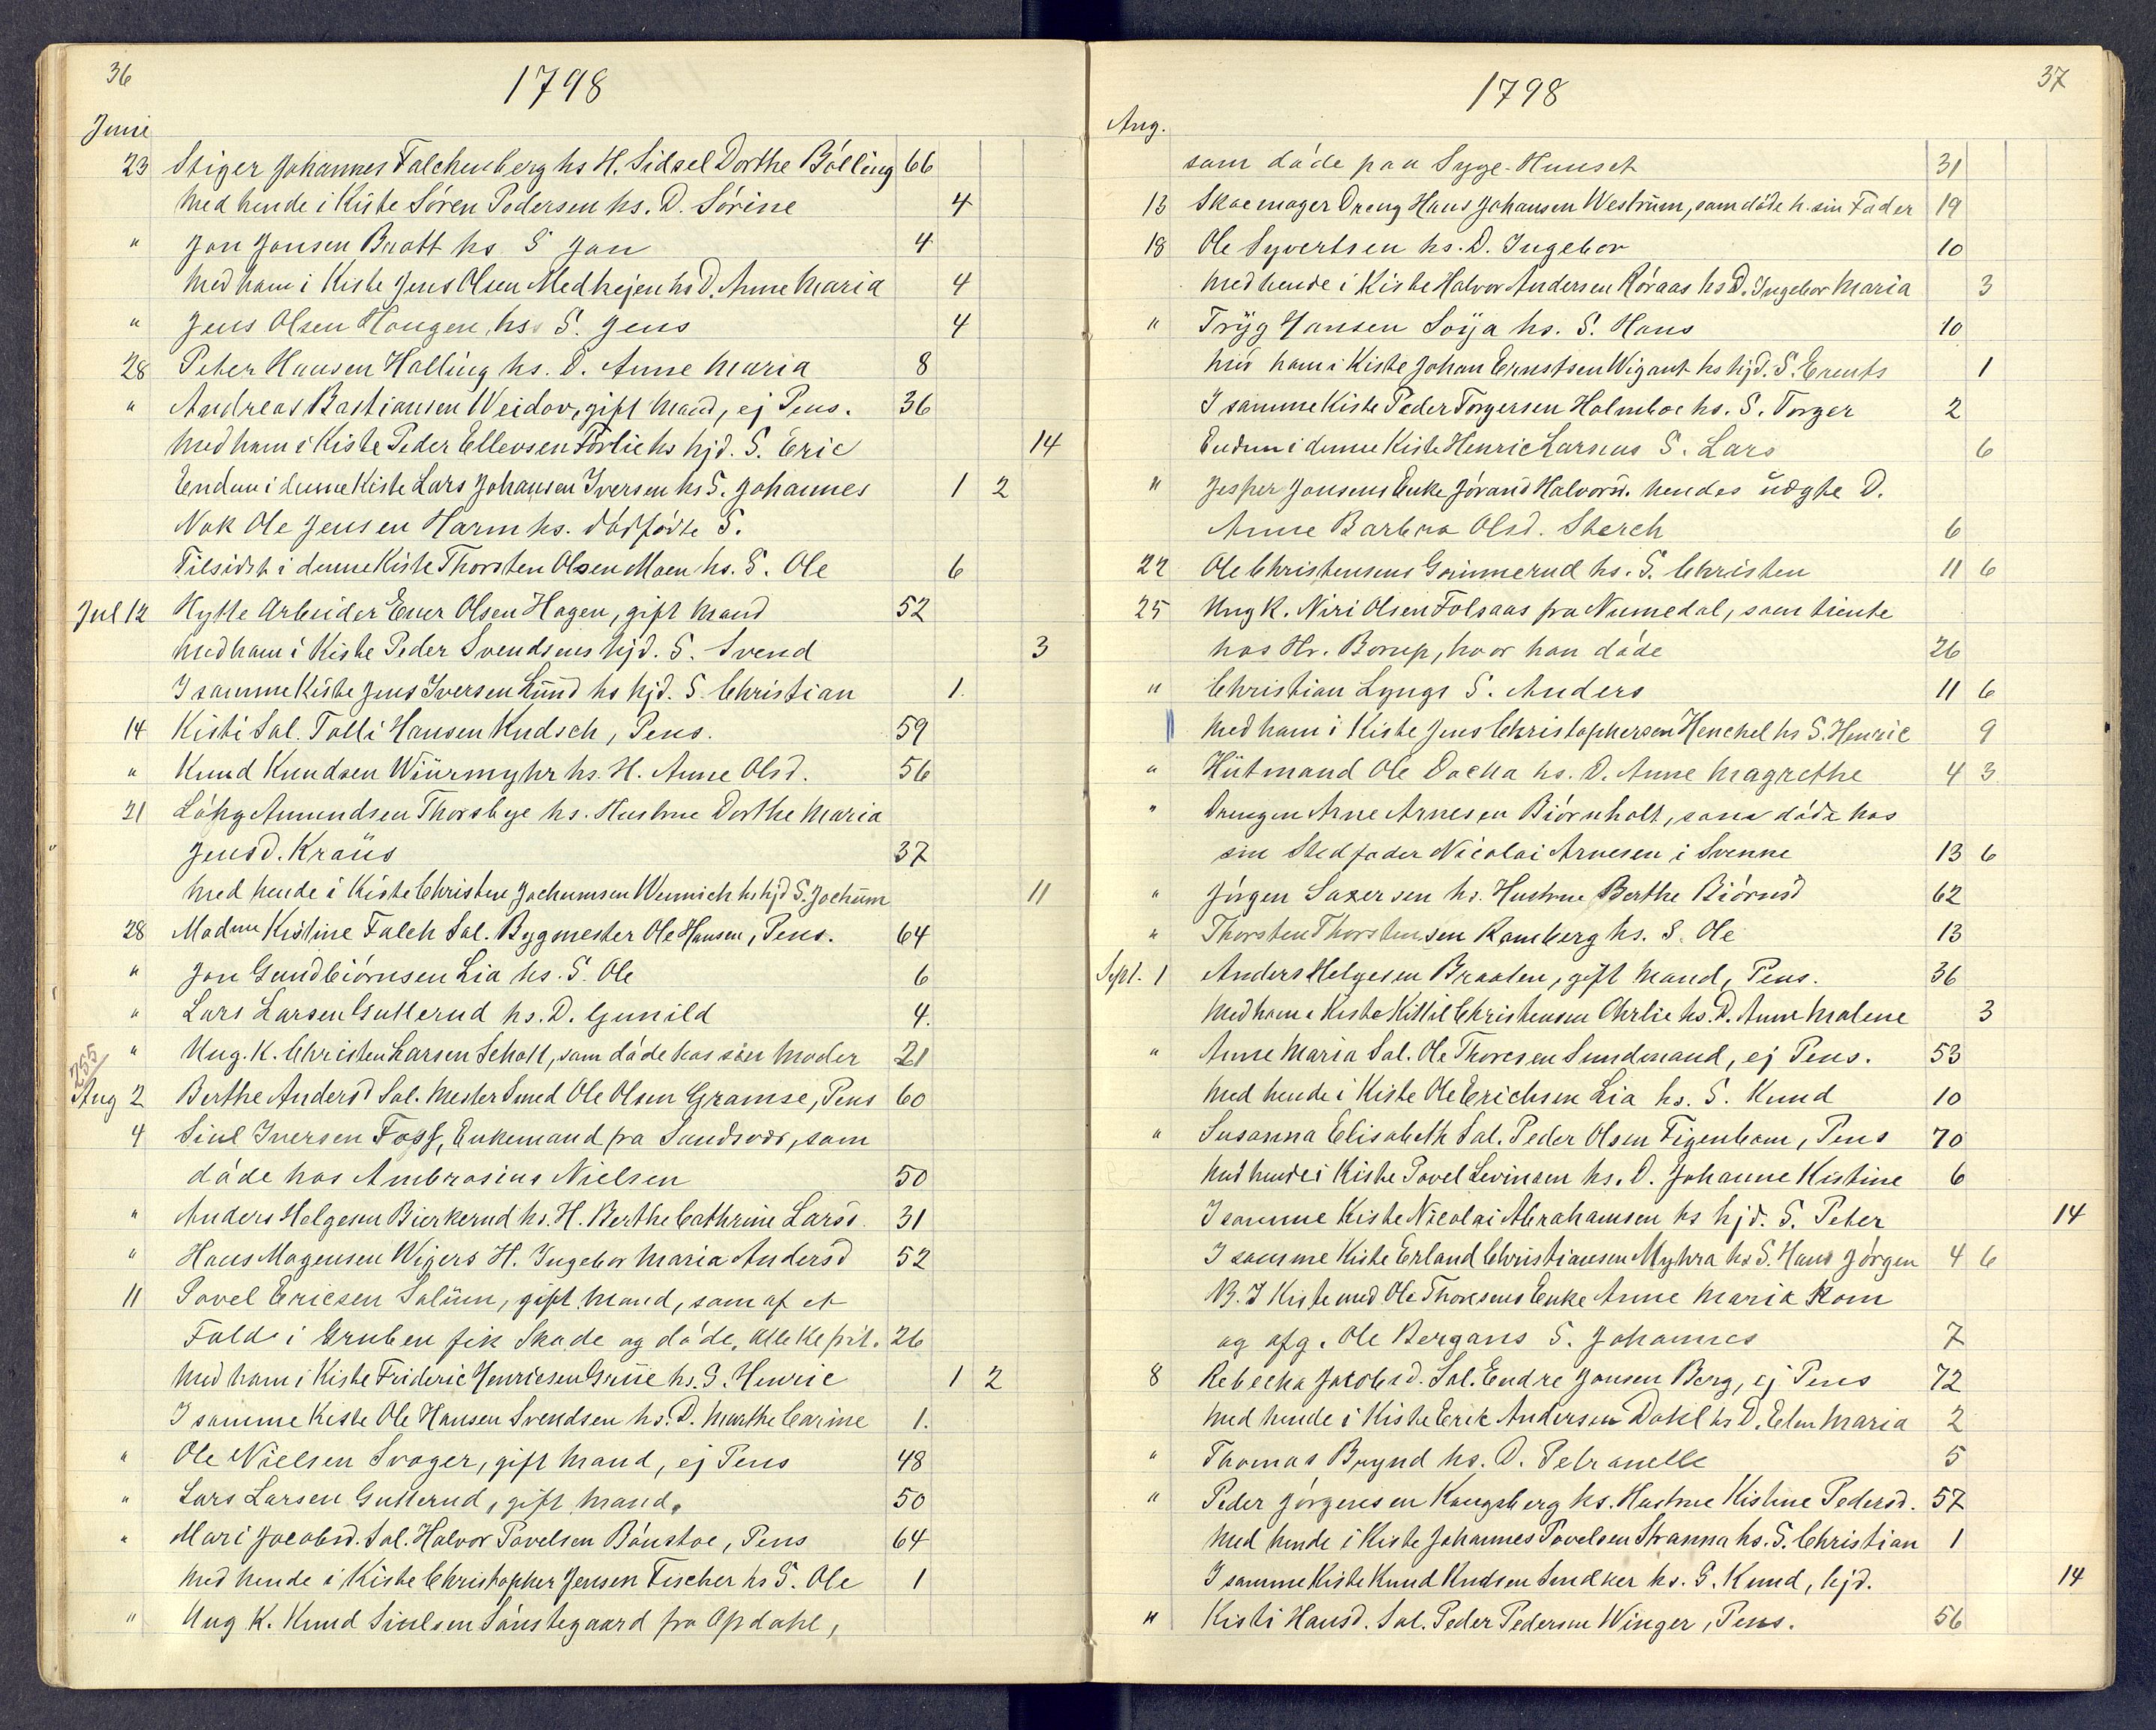 36
1798
Juni
23 Stiger Johannes Falchenberg hs H. Sidsel Dorthe Bölling 66
Med hende i Kiste Sören Pedersen hs. D. Sörine 4
" Jon Jonsen Bratt hs S Jon 4
Med ham i Kiste Jens Olsen Medhejen hs D. Anne Maria 4
" Jens Olsen Haugen, hs. S. Jens 4
28 Peter Hansen Halling hs. D. Anne Maria 8
" Andreas Bastiansen Weidov, gift Mand, ej Pens. 36
Med ham i Kiste Peder Ellevsen Förlie hs hjd. S. Eric 14
Endnu i denne Kiste Lars Johansen Iversen hs S. Johannes 1 2
Nok Ole Jensen Harm hs. dödfödte S.
Tilsidst i denne Kiste Thorsten Olsen Moen hs. S. Ole 6
Jul 12 Hytte Arbeider Ener Olsen Hagen, gift Mand 52
Med ham i Kiste Peder Svendsens hjd. S. Svend 3
I samme Kiste Jens Iversen Lund hs hjd. S. Christian 1.
14 Kisti Sal. Tolli Hansen Kudsch, Pens. 59
" Knud Knudsen Würmyhr hs. H. Anne Olsd. 56
21 Amundsen Thorsbye hs. Hustrue Dorthe Maria
Jensd. Kraüs 37
Med hende i Kiste Christen Jochumsen Wennich hs hjd S. Jochum 11
28 Mad\textsuperscript{me} Kistine Falch Sal. Bygmester Ole Hansen, Pens. 64
" Jon Gundbiörnsen Lia hs. S. Ole 6
" Lars Larsen Gutterud hs. D. Gunild 4.
" Ung. K. Christen Larsen Schott, som döde hos sin Moder 21
255
Aug 2 Berthe Andersd Sal. Mester Smed Ole Olsen Gramse, Pens 60
4 Siul Iversen Foss, Enkemand fra Sandsvær, som
döde hos Ambrosius Nielsen 50
" Anders Helgesen Bierkerud hs. H. Berthe Cathrine Larsd. 31
" Hans Mogensen Wigers H. Ingebor Maria Andersd 52
11 Povel Ericsen Salüm, gift Mand, som af et
Fald i Gruben fik Skade og döde, 26
Med ham i Kiste Frideric Henricsen Grüe hs. S. Henric 1 2
I samme Kiste Ole Hansen Svendsen hs. D. Marthe Carine 1.
" Ole Nielsen Svager, gift Mand, ej Pens 48
" Lars Larsen Gutterud, gift Mand. 50
" Mari Jacobsd. Sal. Halvor Povelsen Bönstoe, Pens 64
Med hende i Kiste Christopher Jensen Fischer hs S. Ole 1
" Ung K. Knud Siulsen Sönstegaard fra Opdahl,
37
1798
Aug.
som döde paa Syge-Huuset 31
13 Skoemager Dreng Hans Johansen Westrum, som döde h. sin Fader 19
18 Ole Syvertsen hs. D. Ingebor 10
Med hende i Kiste Halvor Andersen Röraas hs D. Ingebor Maria 3
" Tryg Hansen Soya hs. S. Hans 10
Med ham i Kiste Johan Ernstsen Wigant hs hjd. S. Erents 1
I samme Kiste Peder Torgersen Holmboe hs. S. Torger 2
Endnu i denne Kiste Henric Larsens S. Lars 6
" Jesper Jonsens Enke Jörand Halvorsd. hendes uægte D.
Anne Barbra Olsd. Sterch 6
22 Ole Christensens Grimmerud hs. S. Christen 11 6
25 Ung K. Niri Olsen Folsaas fra Numedal, som tiente
hos Hr. Borup, hvor han döde 26
" Christian Lyngs S. Anders 11 6
Med ham i Kiste Jens Christophersen Henchel hs S. Henric 9
" Hütmand Ole Docka hs. D. Anne Magrethe 4 3
" Drengen Arne Arnesen Biörnholt, som döde hos
sin Stedfader Nicolai Arnesen i Svenne 13 6
" Jörgen Saxersen hs. Hustrue Berthe Biörnsd 62
" Thorsten Thorstensen Ramberg hs. S. Ole 13
Sept. 1 Anders Helgesen Braaten, gift Mand, Pens. 36
Med ham i Kiste Kittil Christensen Ohrlie hs. D. Anne Malene 3
" Anne Maria Sal. Ole Thoresen Sundmand, ej Pens. 53
Med hende i Kiste Ole Erichsen Lia hs. S. Knud 10
" Susanna Elisabeth Sal. Peder Olsen Figenbom, Pens 70
Med hende i Kiste Povel Levinsen hs. D. Johanne Kistine 6
I samme Kiste Nicolai Abrahamsen hs hjd. S. Peter 14
I samme Kiste Erland Christiansen Myhra hs S. Hans Jörgen 4 6
NB. I Kiste med Ole Thoresens Enke Anne Maria kom
og afg. Ole Bergans S. Johannes 7
8 Rebecka Jacobsd. Sal. Endre Jonsen Berg, ej Pens 72
Med hende i Kiste Erik Andersen Dokl hs D. Elen Maria 2
" Thomas Brynd hs. D. Petranelle 5
" Peder Jörgensen Kongsberg hs. Hustrue Kistine Pedersd. 57
Med hende i Kiste Johannes Povelsen Stranna hs. S. Christian 1
I samme Kiste Knud Knudsen Sundker hs. S. Knud, hjd. 14
" Kisti Hansd. Sal. Peder Pedersen Winger, Pens. 56